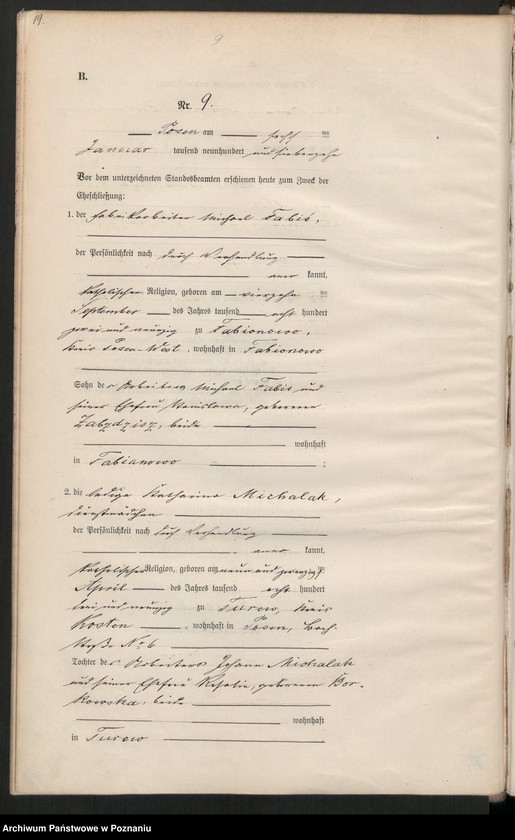 19.
9
B.
Nr. 9.
Posen am sechs ten
Januar tausend neunhundert und siebenzehn
Vor dem unterzeichneten Standesbeamten erschienen heute zum Zweck der
Eheschließung:
1. der Fabrikarbeiter Michael Fabis,
der Persönlichkeit nach durch Verhandlung
aner kannt,
katholischer Religion, geboren am vierzehn ten
September des Jahres tausend acht hundert
zwei und neunzig zu Fabianowo,
Kreis Posen-West, wohnhaft in Fabianowo
Sohn des Arbeiters Michael Fabis und
seiner Ehefrau Stanislawa, geborenen
beide
wohnhaft
in Fabianowo ;
2. die ledige Katharina Michalak,
Dienstmädchen
der Persönlichkeit nach durch Verhandlung
aner kannt,
katholischer Religion, geboren am neun und zwanzig
April des Jahres tausend acht hundert
drei und neunzig zu Turew, Kreis
Kosten, wohnhaft in Posen,
straße No 6
Tochter des Arbeiters Johann Michalak
und seiner Ehefrau Rosalie, geborenen Bor-
kowska, beide
wohnhaft
in Turew
Archiwum Państwowe w Poznaniu